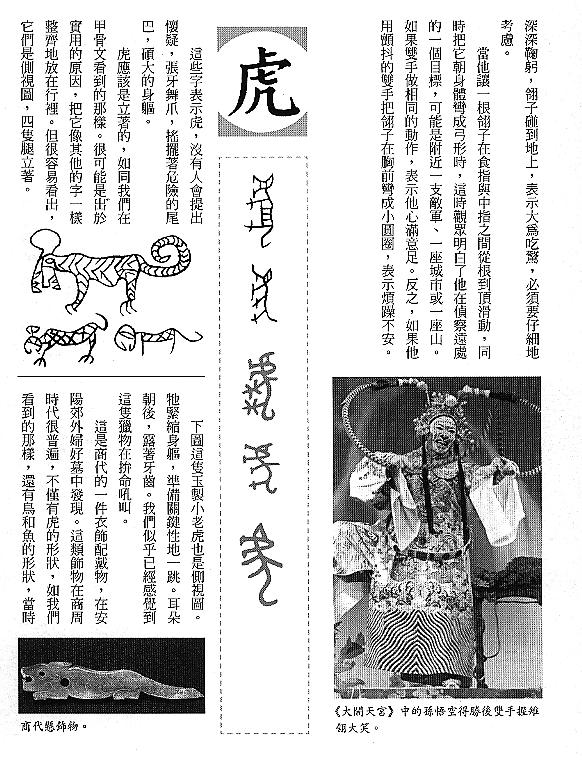 深深鞠躬，翎子碰到地上，表示大爲吃驚，必須要仔細地
考慮。
當他讓一根翎子在食指與中指之間從根到頂滑動，同
時把它朝身體彎成弓形時，這時觀眾明白了他在偵察遠處
的一個目標，可能是附近一支敵軍、一座城市或一座山。
如果雙手做相同的動作，表示他心滿意足。反之，如果他
用顫抖的雙手把翎子在胸前彎成小圓圈，表示煩躁不安。
《大鬧天宮》中的孫悟空得勝後雙手握雉
翎大笑。
虎
這些字表示虎，沒有人會提出
懷疑，張牙舞爪，搖擺著危險的尾
巴，碩大的身軀。
虎應該是立著的，如同我們在
甲骨文看到的那樣。很可能是出於
實用的原因，把它像其他的字一樣
整齊地放在行裡。但很容易看出，
它們是側視圖，四隻腿立著。
下圖這隻玉製小老虎也是側視圖。
牠緊縮身軀，準備關鍵性地一跳。耳朵
朝後，露著牙齒。我們似乎已經感覺到
這隻獵物在拚命吼叫。
這是商代的一件衣飾配戴物，在安
陽郊外婦好墓中發現。這類飾物在商周
時代很普遍，不僅有虎的形狀，如我們
看到的那樣，還有鳥和魚的形狀，當時
商代懸飾物。